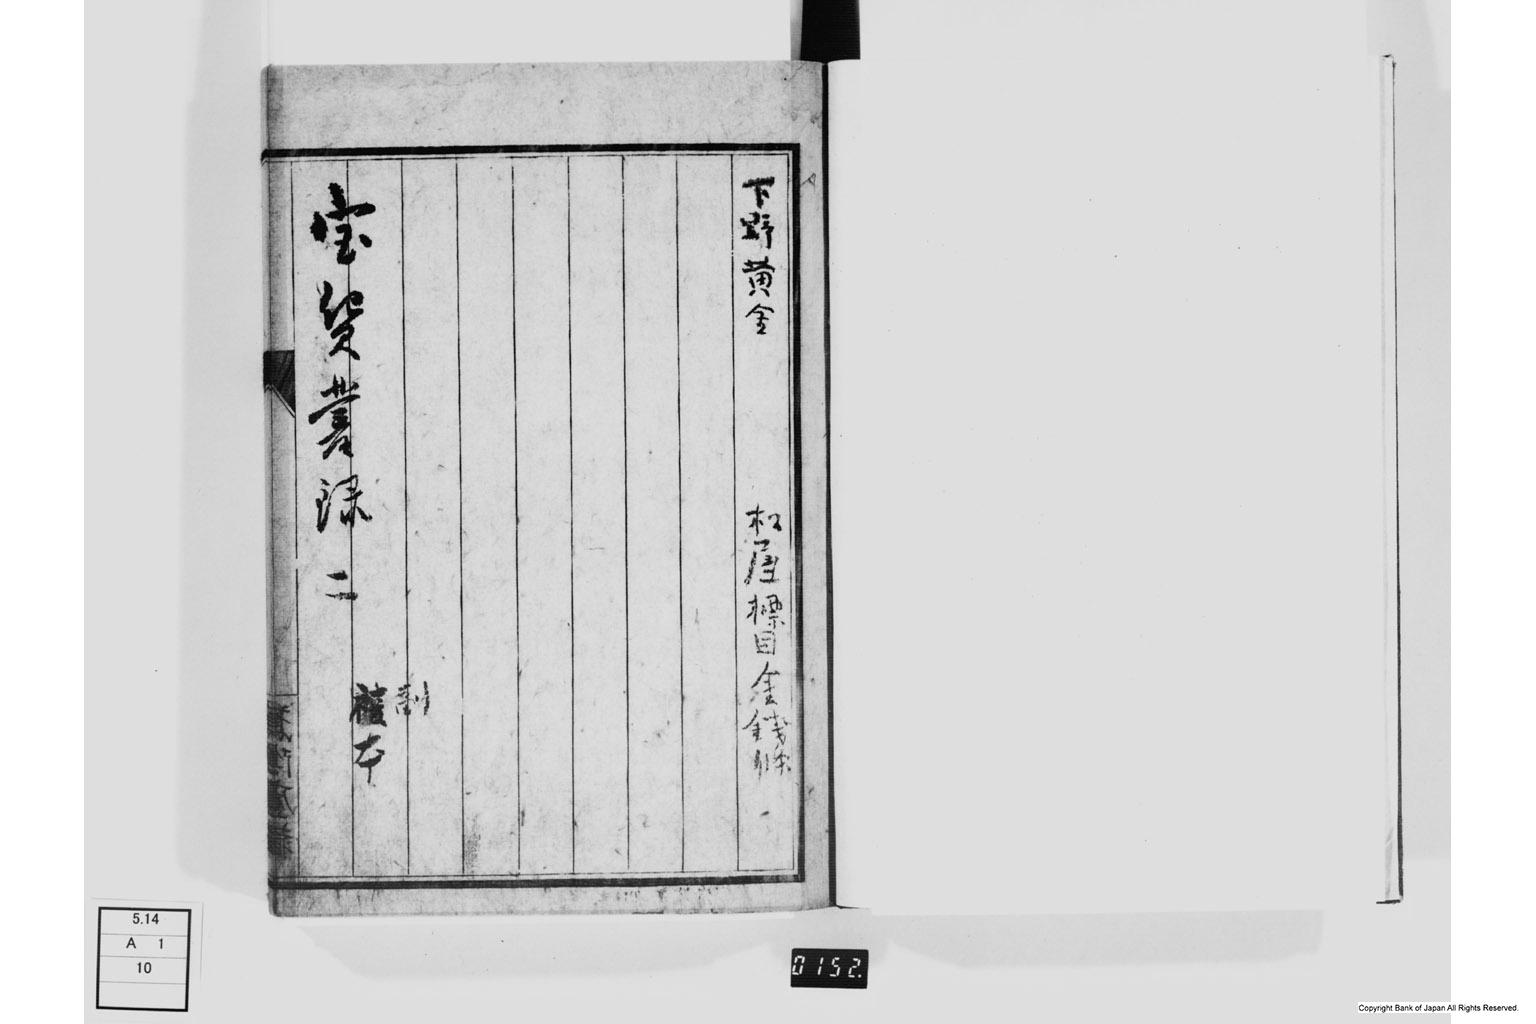 下野黄金
松屋標目金銭條
宝貨叢録 二
割
複本
5.14
A 1
10
0152.
Copyright Bank of Japan All Rights Reserved.